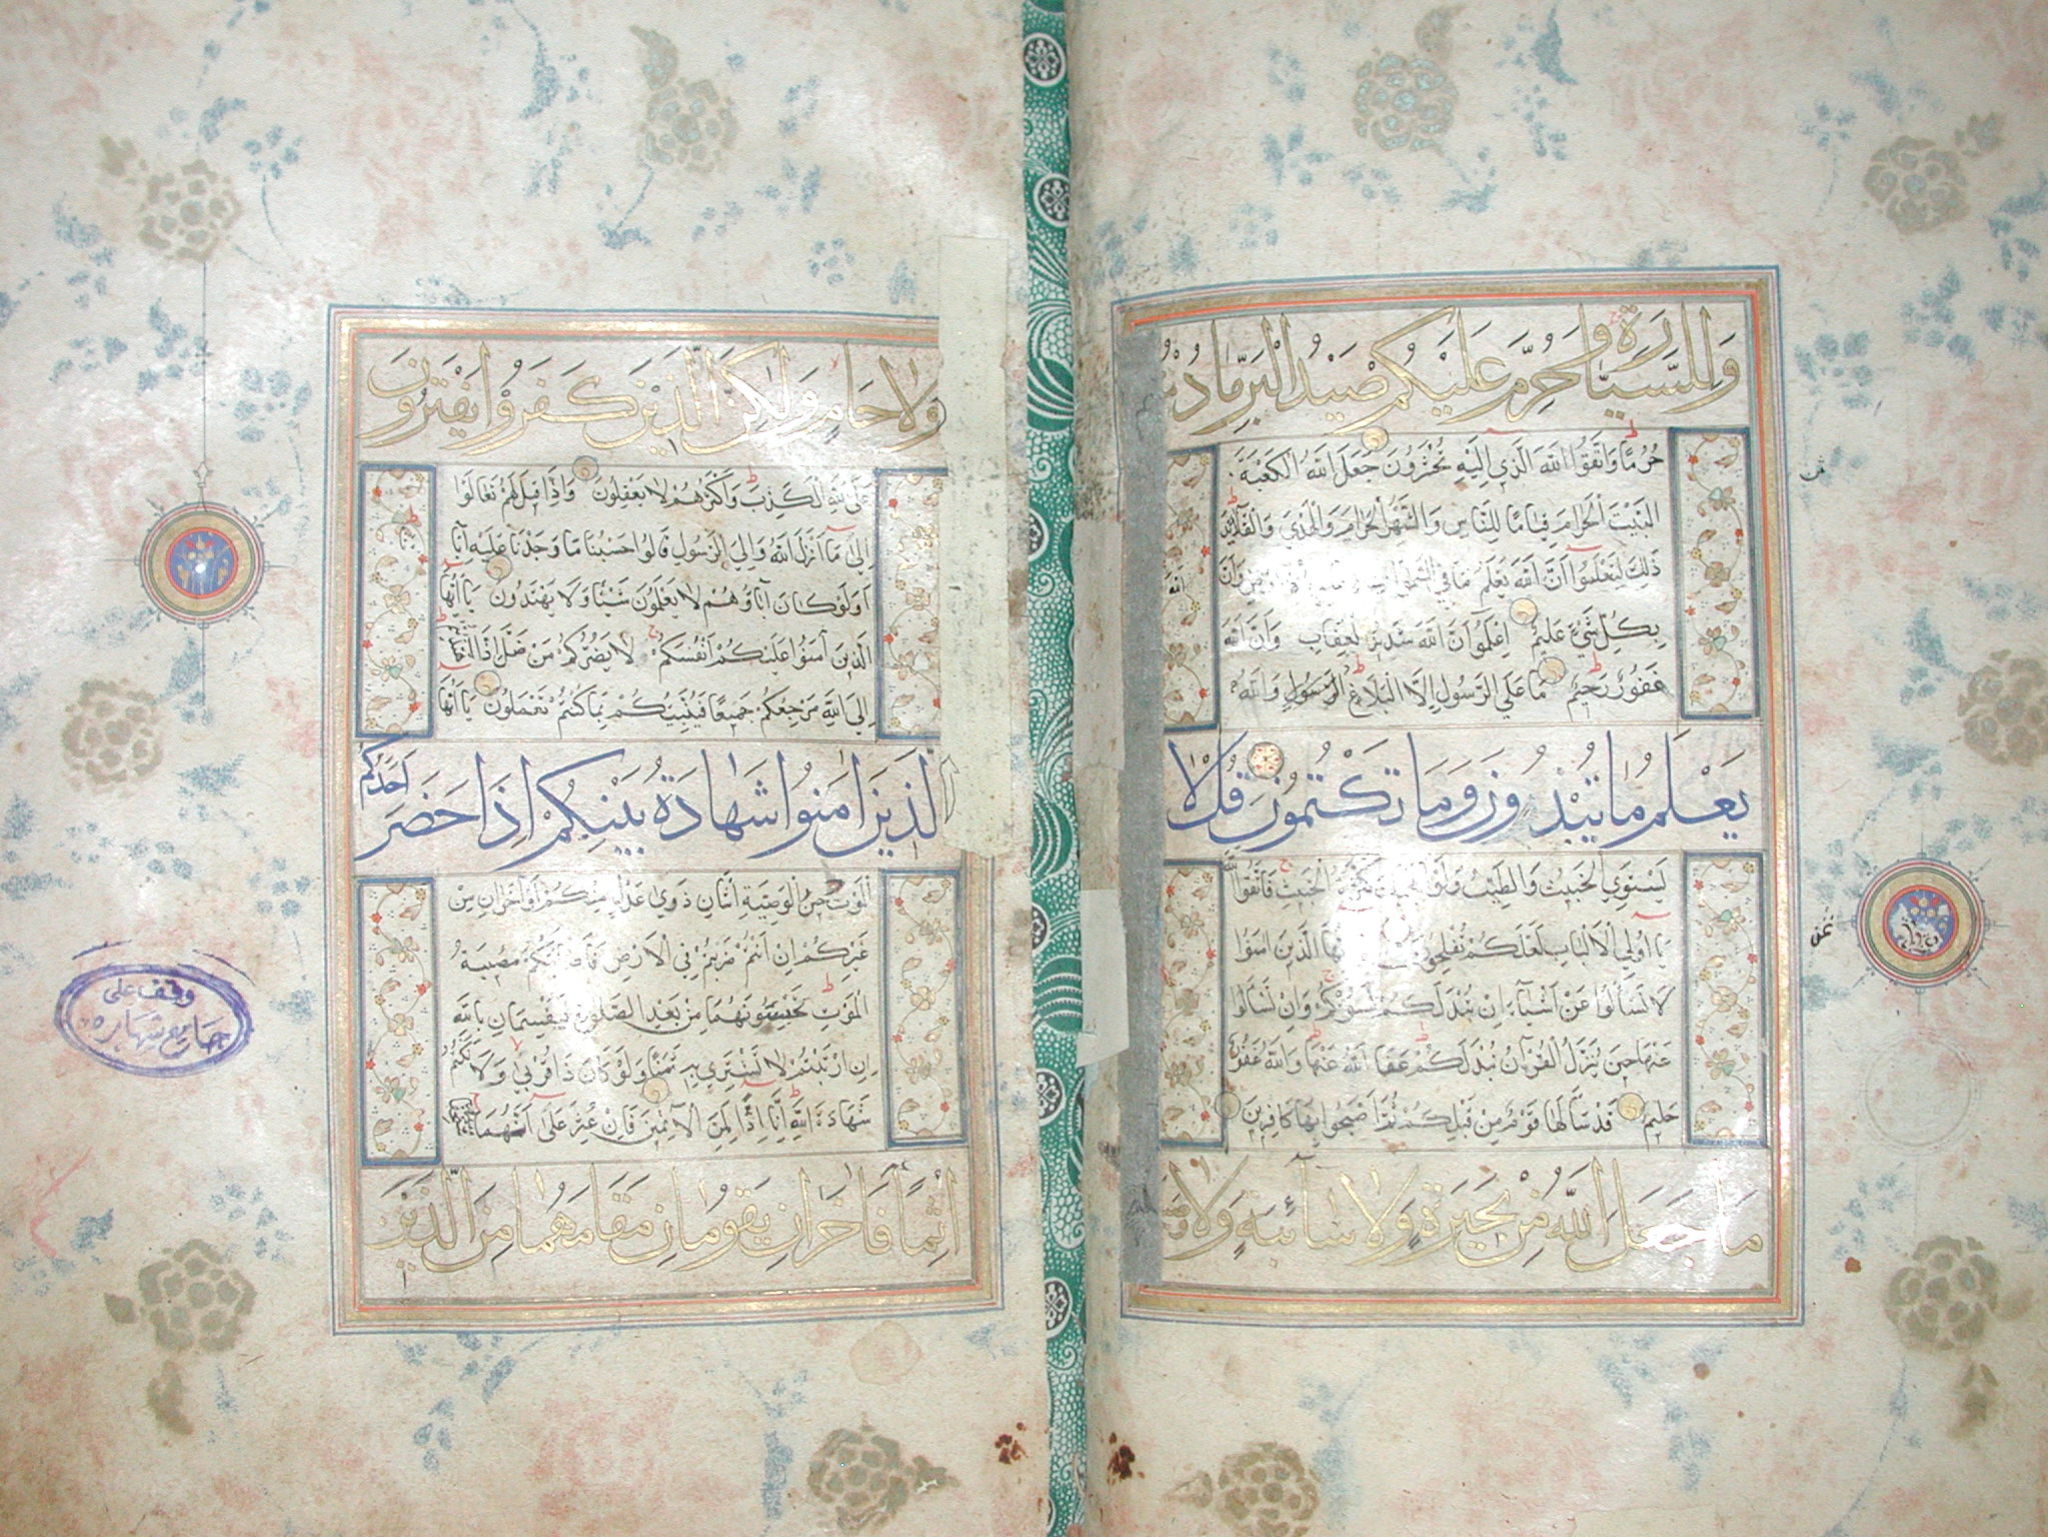 وَلِلسَّيَّارَةِ وَحُرِّمَ عَلَيْكُمْ صَيْدُ الْبَرِّ مَا دُمْتُمْ
حُرُمًا وَاتَّقُوا اللَّهَ الَّذِي إِلَيْهِ تُحْشَرُونَ جَعَلَ اللَّهُ الْكَعْبَةَ
الْبَيْتَ الْحَرَامَ قِيَامًا لِلنَّاسِ وَالشَّهْرَ الْحَرَامَ وَالْهَدْيَ وَالْقَلَائِدَ
ذَلِكَ لِتَعْلَمُوا أَنَّ اللَّهَ يَعْلَمُ مَا فِي السَّمَوَاتِ وَأَنَّ اللَّهَ
بِكُلِّ شَيْءٍ عَلِيمٌ اعْلَمُوا أَنَّ اللَّهَ شَدِيدُ الْعِقَابِ وَأَنَّ اللَّهَ
غَفُورٌ رَحِيمٌ مَا عَلَى الرَّسُولِ إِلَّا الْبَلَاغُ وَاللَّهُ
يَعْلَمُ مَا تُبْدُونَ وَمَا تَكْتُمُونَ قُلْ لَا
يَسْتَوِي الْخَبِيثُ وَالطَّيِّبُ وَلَوْ أَعْجَبَكَ كَثْرَةُ الْخَبِيثِ فَاتَّقُوا اللَّهَ
يَا أُولِي الْأَلْبَابِ لَعَلَّكُمْ تُفْلِحُونَ يَا أَيُّهَا الَّذِينَ آمَنُوا
لَا تَسْأَلُوا عَنْ أَشْيَاءَ إِنْ تُبْدَ لَكُمْ تَسُؤْكُمْ وَإِنْ تَسْأَلُوا
عَنْهَا حِينَ يُنَزَّلُ الْقُرْآنُ تُبْدَ لَكُمْ عَفَا اللَّهُ عَنْهَا وَاللَّهُ غَفُورٌ
حَلِيمٌ قَدْ سَأَلَهَا قَوْمٌ مِنْ قَبْلِكُمْ ثُمَّ أَصْبَحُوا بِهَا كَافِرِينَ
مَا جَعَلَ اللَّهُ مِنْ بَحِيرَةٍ وَلَا سَائِبَةٍ وَلَا
ثمن
ثمن
وَلَا حَامٍ وَلَكِنَّ الَّذِينَ كَفَرُوا يَفْتَرُونَ
عَلَى اللَّهِ الْكَذِبَ وَأَكْثَرُهُمْ لَا يَعْقِلُونَ وَإِذَا قِيلَ لَهُمْ تَعَالَوْا
إِلَى مَا أَنْزَلَ اللَّهُ وَإِلَى الرَّسُولِ قَالُوا حَسْبُنَا مَا وَجَدْنَا عَلَيْهِ آبَاءَنَا
أَوَلَوْ كَانَ آبَاؤُهُمْ لَا يَعْلَمُونَ شَيْئًا وَلَا يَهْتَدُونَ يَا أَيُّهَا
الَّذِينَ آمَنُوا عَلَيْكُمْ أَنْفُسَكُمْ لَا يَضُرُّكُمْ مَنْ ضَلَّ إِذَا اهْتَدَيْتُمْ
إِلَى اللَّهِ مَرْجِعُكُمْ جَمِيعًا فَيُنَبِّئُكُمْ بِمَا كُنْتُمْ تَعْمَلُونَ يَا أَيُّهَا
الَّذِينَ آمَنُوا شَهَادَةُ بَيْنِكُمْ إِذَا حَضَرَ أَحَدَكُمُ
الْمَوْتُ حِينَ الْوَصِيَّةِ اثْنَانِ ذَوَى عَدْلٍ مِنْكُمْ أَوْ آخَرَانِ مِنْ
غَيْرِكُمْ إِنْ أَنْتُمْ ضَرَبْتُمْ فِي الْأَرْضِ فَأَصَابَتْكُمْ مُصِيبَةُ
الْمَوْتِ تَحْبِسُونَهُمَا مِنْ بَعْدِ الصَّلَوةِ فَيُقْسِمَانِ بِاللَّهِ
إِنِ ارْتَبْتُمْ لَا نَشْتَرِي بِهِ ثَمَنًا وَلَوْ كَانَ ذَا قُرْبَى وَلَا نَكْتُمُ
شَهَادَةَ اللَّهِ إِنَّا إِذًا لَمِنَ الْآثِمِينَ فَإِنْ عُثِرَ عَلَى أَنَّهُمَا اسْتَحَقَّا
إِثْمًا فَآخَرَانِ يَقُومَانِ مَقَامَهُمَا مِنَ الَّذِينَ
وقف على
جامع شهاره